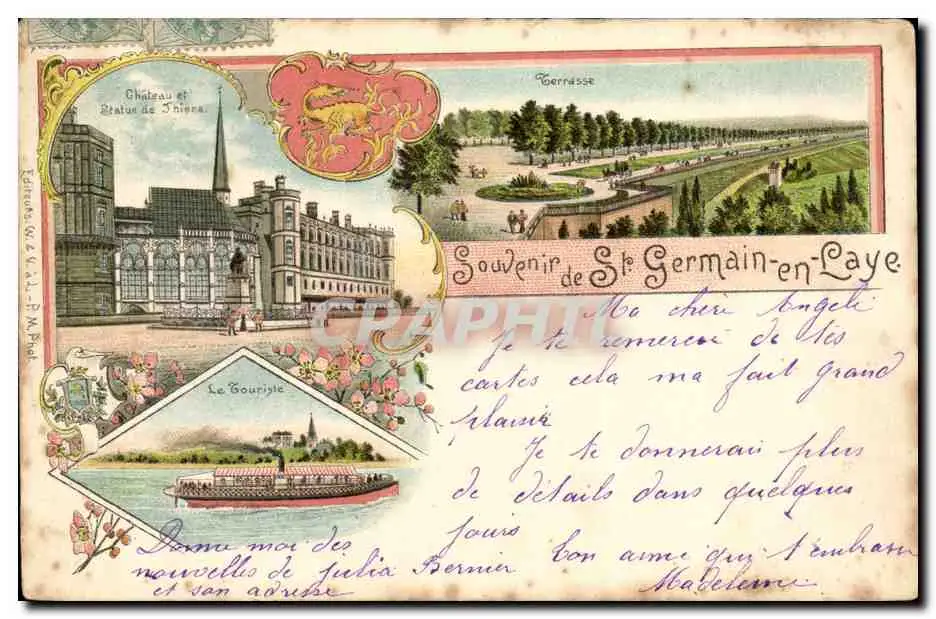 Château et
Statue de Thiers.
Terrasse
Editeurs. W. & V. à L. - P. M. Phot.
Souvenir de St Germain-en-Laye.
CPAPHIL
Le Touriste
Ma chère Angeli
Je te remercie de tes
cartes cela ma fait grand
plaisir
Je te donnerai plus
de détails dans quelques
jours
Ton amie qui t'embrasse
Madeleine
Donne moi des
nouvelles de julia Bernier
et son adresse